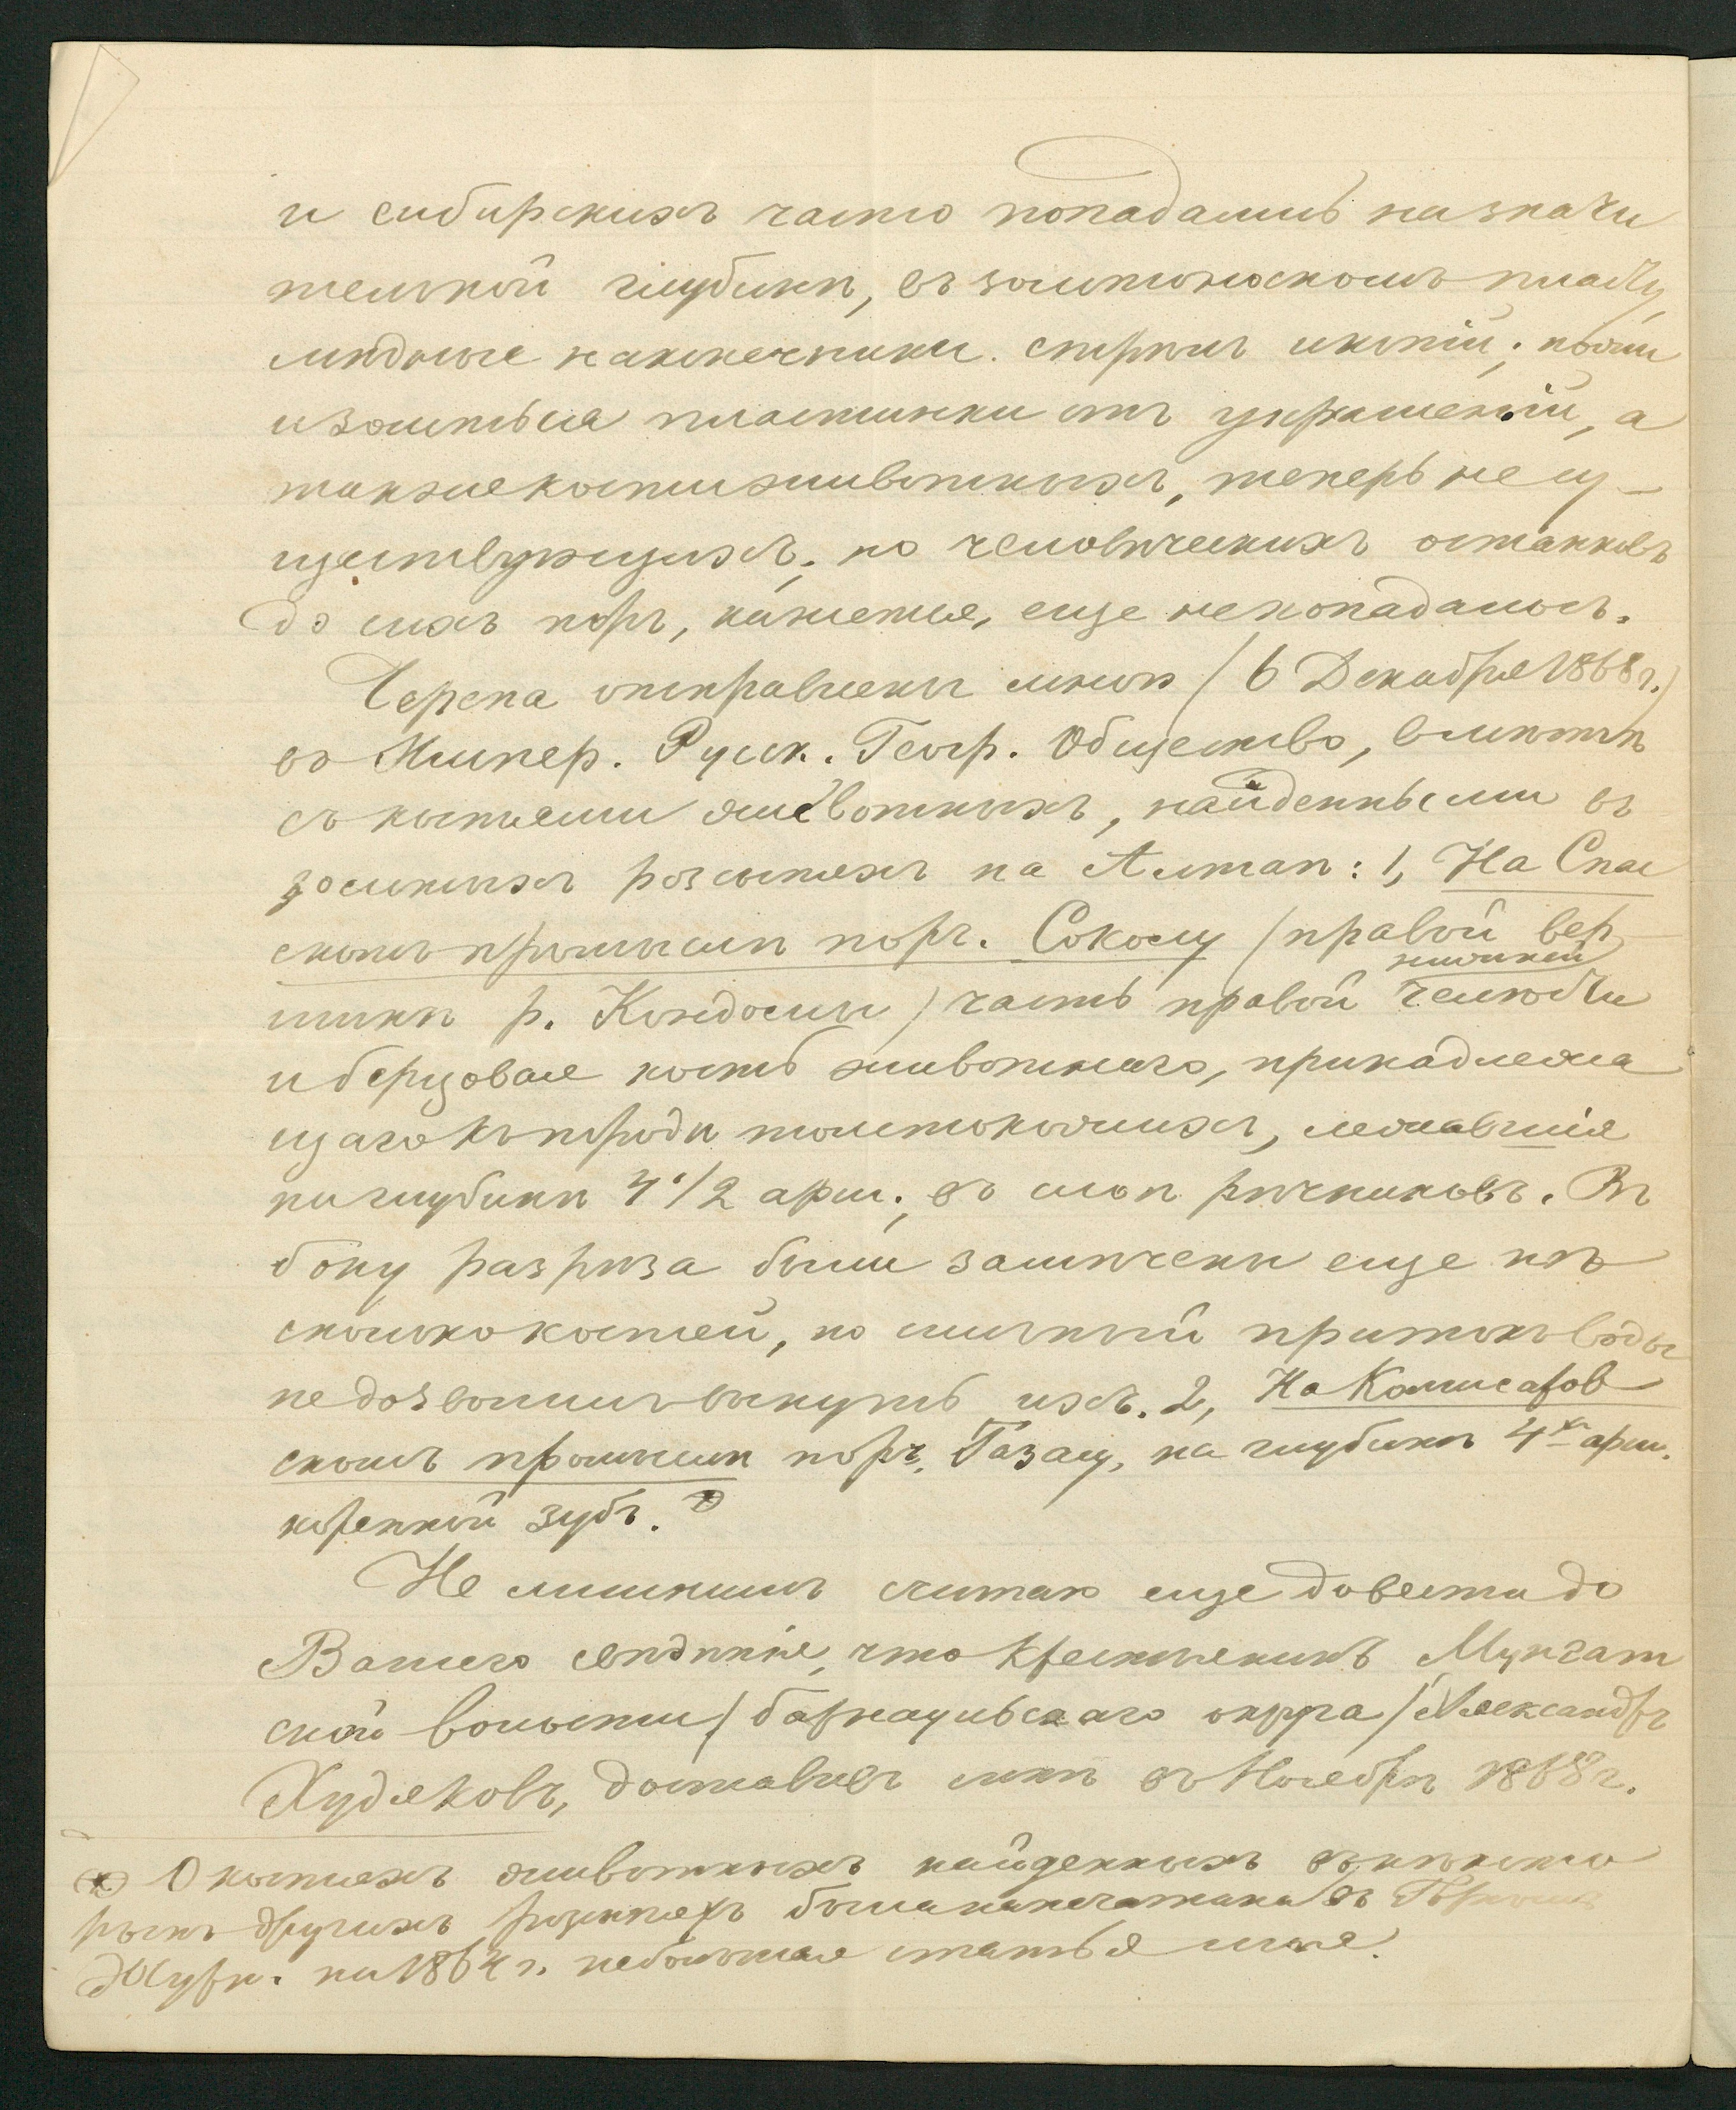 и сибирскихъ часто попадались на значи
тельной глубинѣ, въ золотоносномъ пласту,
мѣдные наконечники стрѣлъ и копій;
и золотыя пластинки отъ украшеній, а
также кости животныхъ, теперь не су-
ществующихъ; но человѣческихъ останковъ
до сихъ поръ, кажется, еще не попадалось.
Черепа отправлены мною (6 Декабря 1868 г.)
въ Импер. Русск. Геогр. Общество, вмѣстѣ
съ костями животныхъ, найденными въ
золотыхъ розсыпяхъ на Алтаѣ: 1, На Спас
скомъ промыслѣ по рч. Соколу (правой вер
шинѣ р. Кондомы) часть правой нижней челюсти
и берцовая кость животнаго, принадлежа
щаго къ породѣ толстокожихъ, лежавшія
на глубинѣ 4 1/2 арш., въ слоѣ рѣчниковъ. Въ
боку разрѣза были замѣчены еще нѣ
сколько костей, но сильный притокъ воды
не дозволилъ вынуть ихъ. 2, На Комисаров
скомъ промыслѣ по рч. Газасу, на глубинѣ 4хъ арш.
коренной зубъ. *)
Не лишнимъ считаю еще довести до
Вашего свѣдѣнія, что крестьянинъ Мунгат
ской волости (барнаульскаго округа) Александръ
Худяковъ, доставилъ мнѣ въ Ноябрѣ 1868 г.
*) О костяхъ животныхъ найденныхъ въ нѣкото
рыхъ другихъ розсыпяхъ была напечатана въ Горномъ
Журн. на 1864 г. небольшая статья моя.